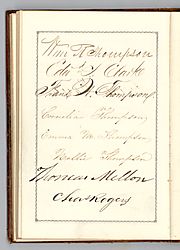 Wm H Thompson
Eda Y Clark
Frank H. Thompson
Cornelia Thompson
Emma M Thompson
Walter Thompson
Thomas Mellon
Chas Rogers